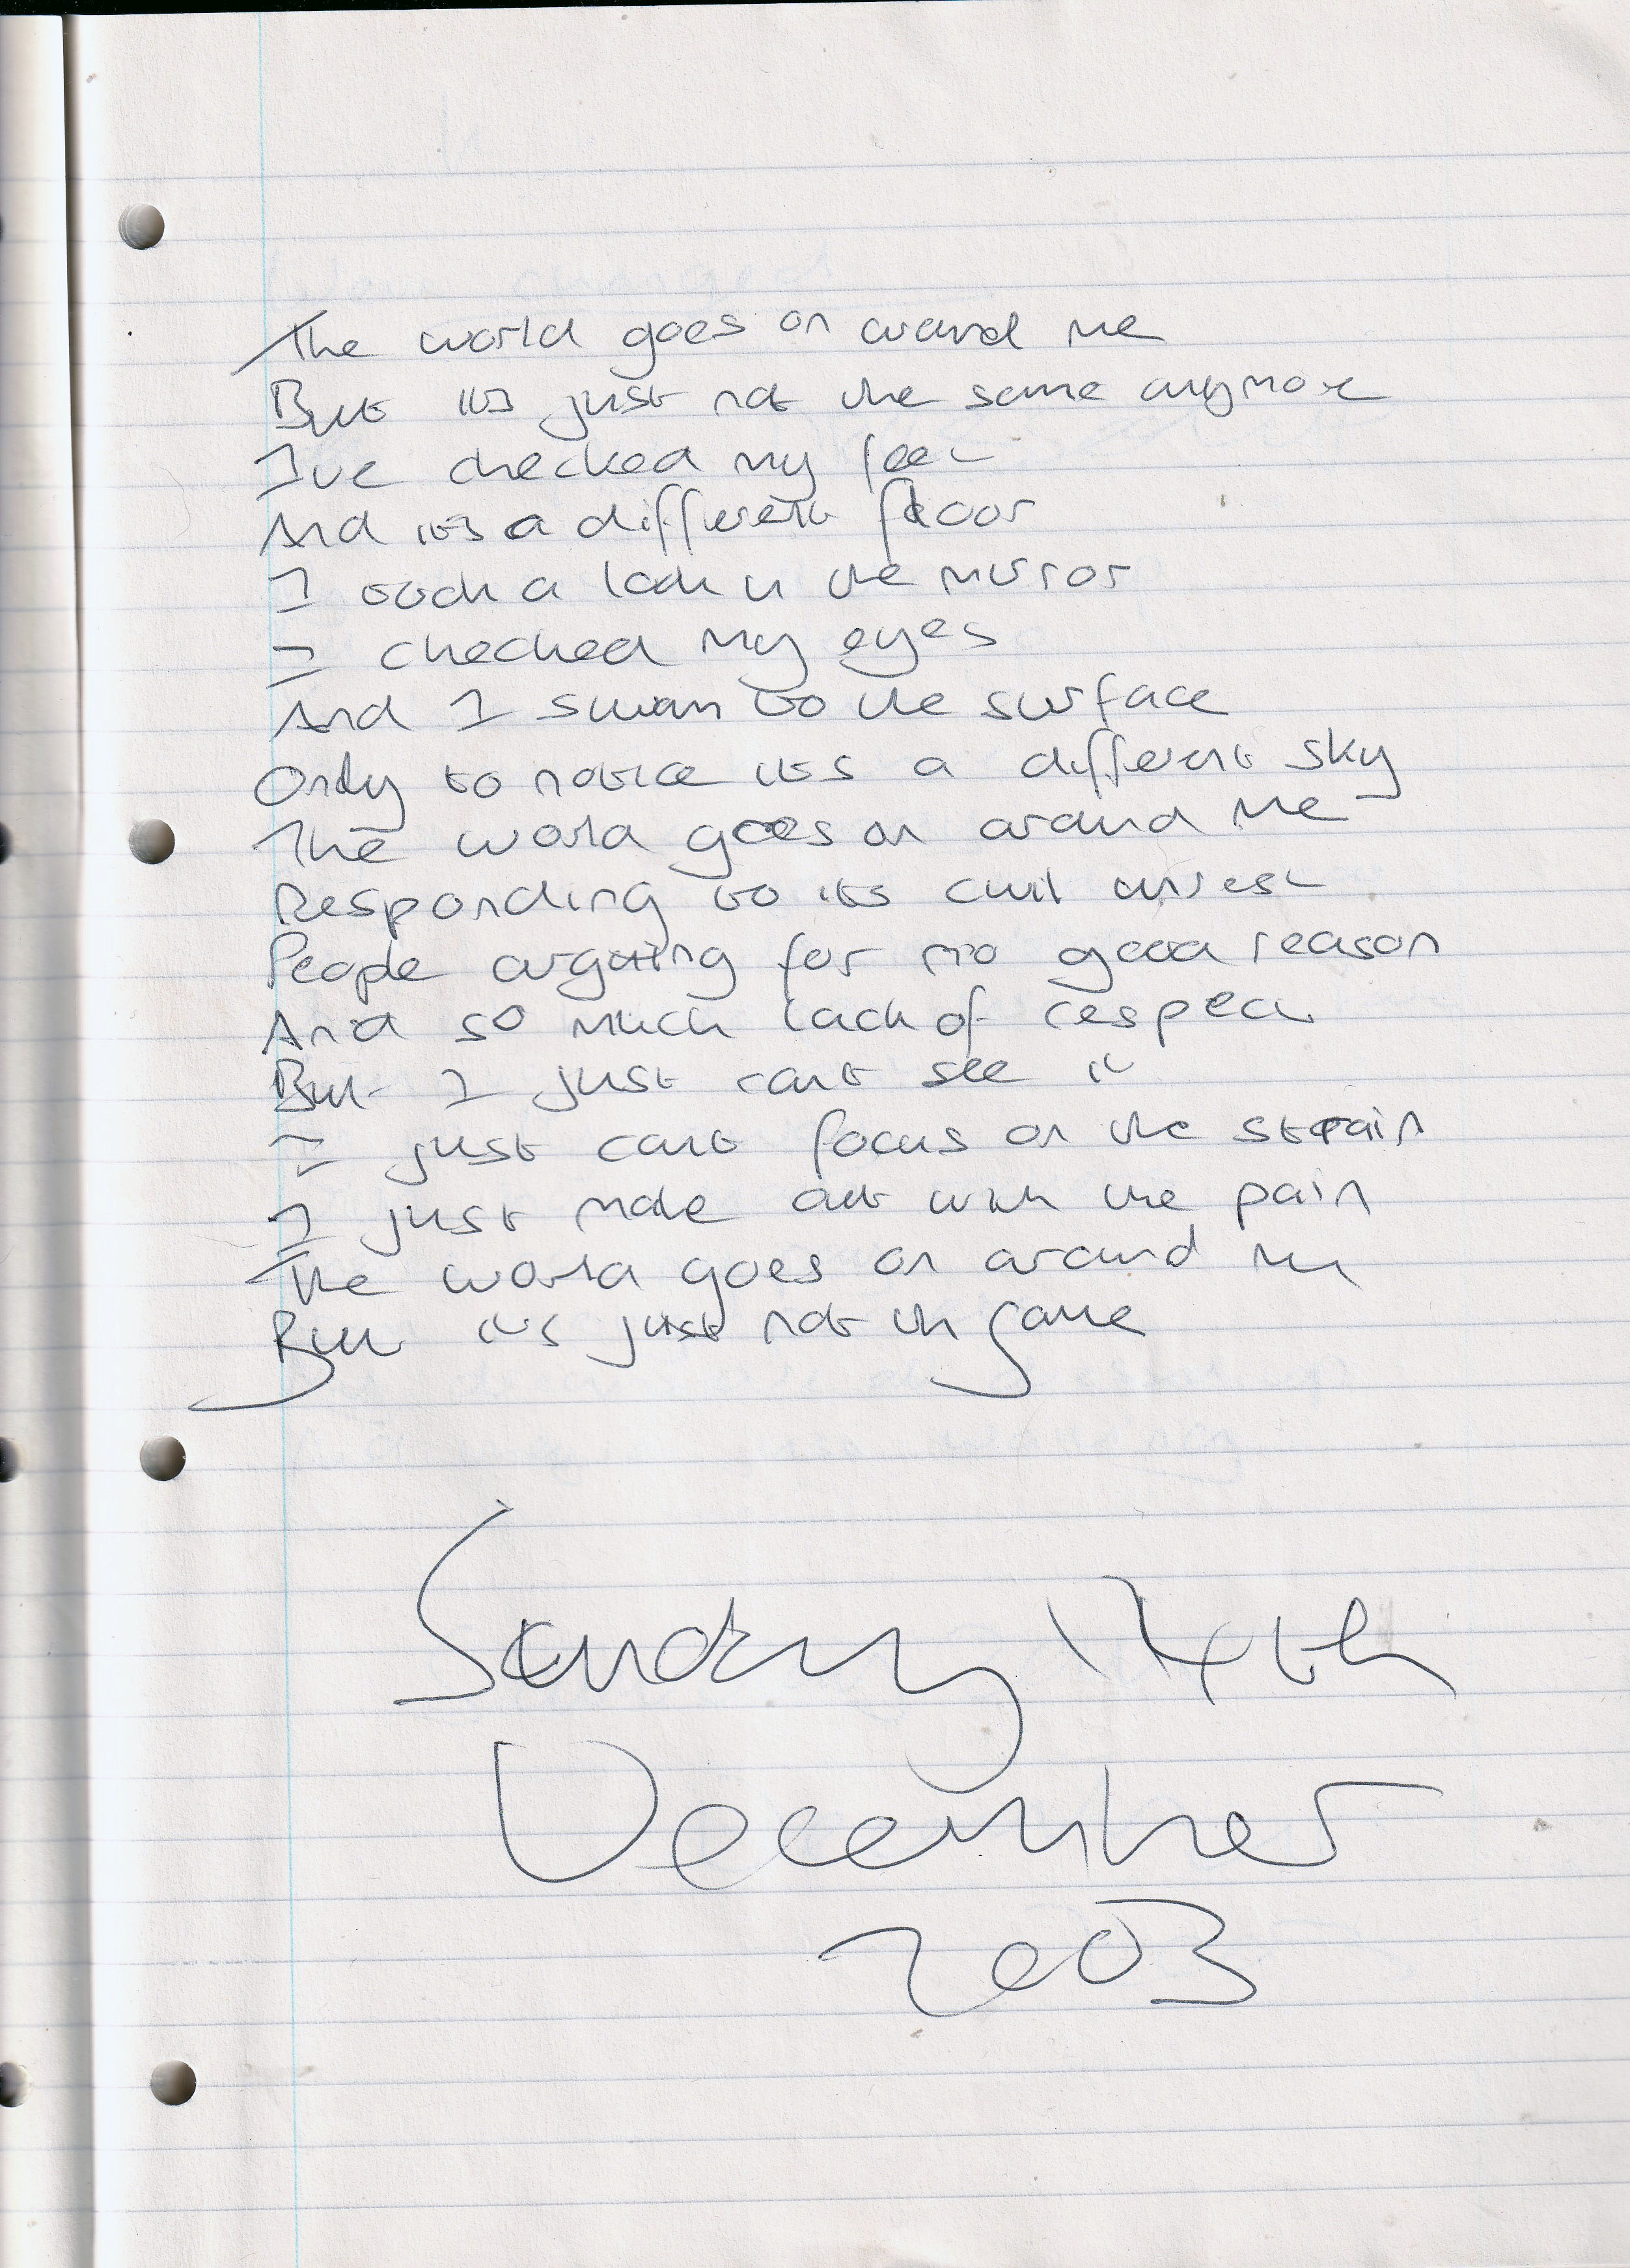 The world goes on around me
But its just not the same anymore
I've checked my feet
And its a different floor
I took a look in the mirror
I checked my eyes
And I swam to the surface
Only to notice its a different sky
The world goes on around me
Responding to its civil unrest
People arguing for no good reason
And so much lack of respect
But I just cant see it
I just cant focus on the strain
I just made out with the pain
The world goes on around me
But its just not the same
December
2003